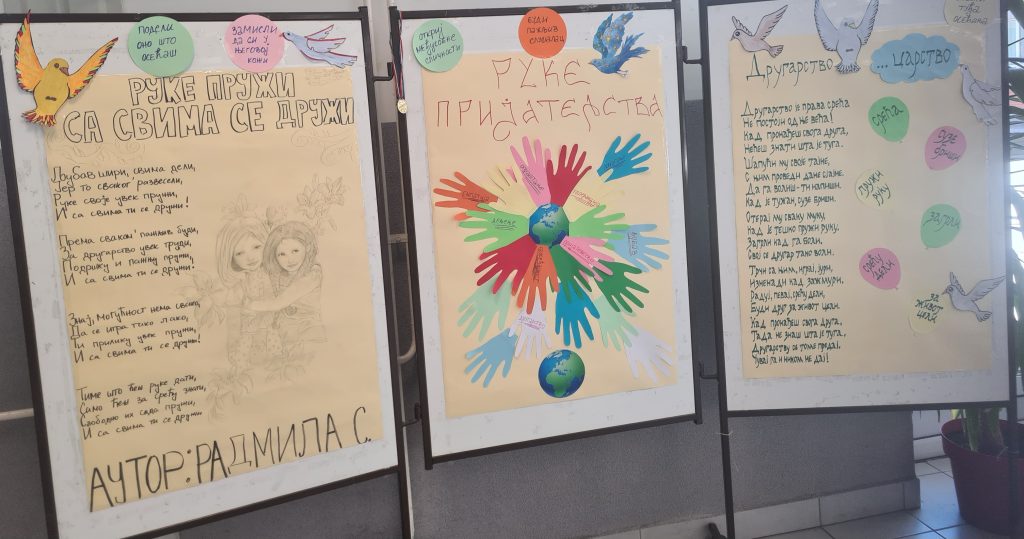 ПОДЕЛИ
ОНО ШТО
ОСЕЋАШ
ЗАМИСЛИ
ДА СИ У
ЊЕГОВОЈ
КОЖИ
РУКЕ ПРУЖИ
СА СВИМА СЕ ДРУЖИ
Љубав шири, свима дели,
Јер то сваког развесели,
Руке своје увек пружи,
И са свима ти се дружи!
Према сваком пажљив буди,
За другарство увек труди,
Подршку и помоћ пружи,
И са свима ти се дружи.
Знај, могућност нема свако,
Да се игра тако лако,
па прилику увек пружи,
И са свима ти се дружи!
Тиме што ћеш руке дати,
Само ћеш за срећу знати,
Слободно их сада пружи,
И са свима ти се дружи
АУТОР: РАДМИЛА С.
ОТКРИЈ
МЕЂУСОБНЕ
СЛИЧНОСТИ
БУДИ
ПАЖЉИВ
СЛУШАЛАЦ
РУКЕ
ПРИЈАТЕЉСТВА
ДРУГАРСТВО
ЉУБАВ
Другарство
...царство
осећања
Другарство је права срећа
Не постоји од ње већа!
Кад пронађеш свога друга,
Нећеш знати шта је туга.
Шапући му своје тајне,
С њим проведи дане сјајне.
Да га волиш - ти напиши.
Кад је тужан, сузе бриши.
Отерај му сваку муку,
Кад је тешко пружи руку,
Загрли кад га боли,
Свој се другар тако воли.
Трчи са њим, играј, жури,
Изненади кад зажмури.
Радуј, певај, срећу дели,
Буди друг за живот цели.
Кад пронађеш свога друга,
Тада не знаш шта је туга,
Другарству се томе предај,
Чувај га и ником не дај!
срећа
сузе
бриши
пружи
руку
загрли
срећу
дели
за
живот
цели